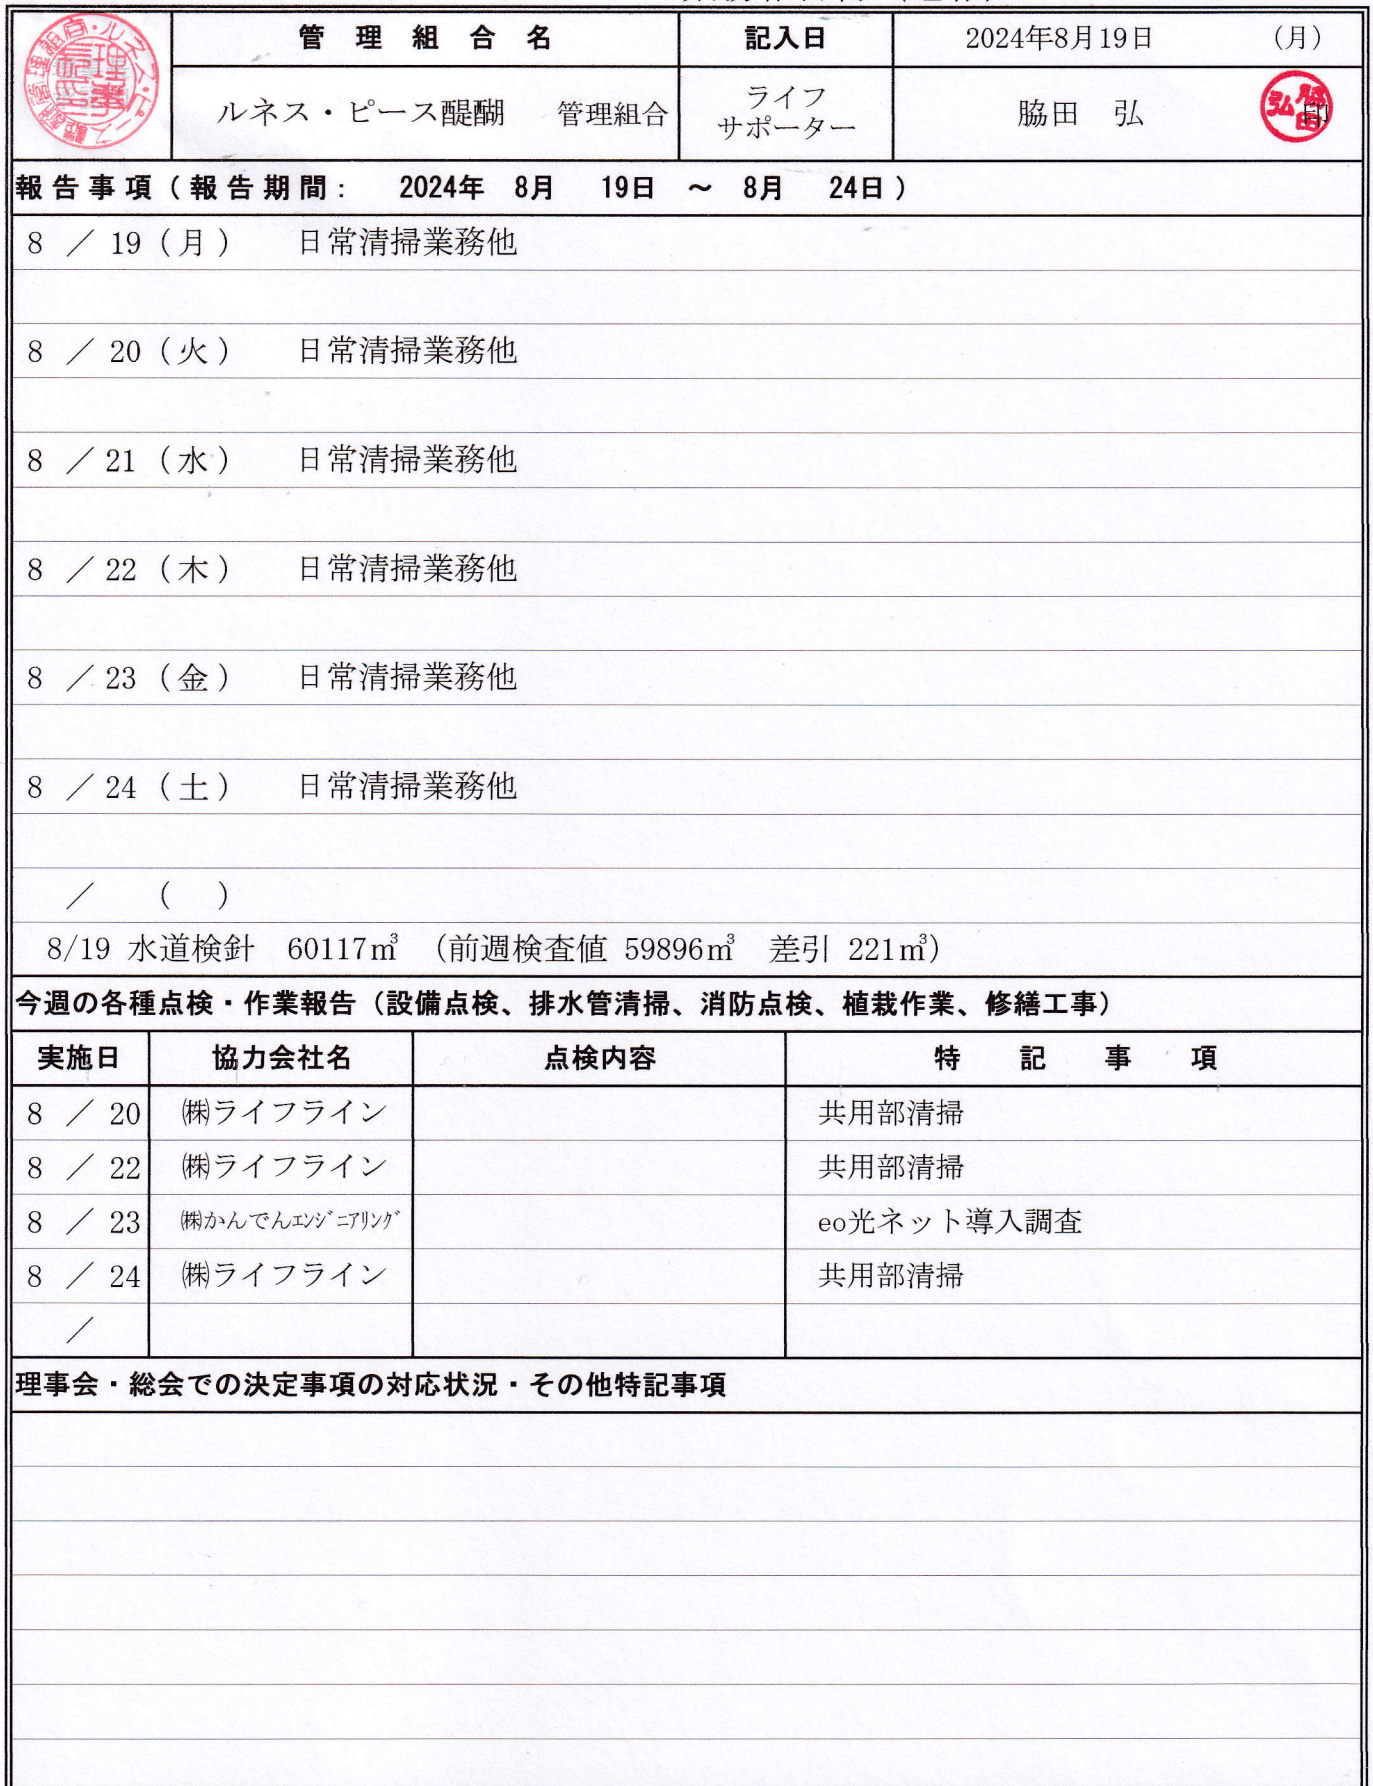 管 理 組 合 名 記入日 2024年8月19日 (月)
ルネス・ピース醍醐 管理組合 ライフ サポーター 脇田 弘 印
報告事項(報告期間: 2024年 8月 19日 ～ 8月 24日)
8 ／ 19 (月) 日常清掃業務他
8 ／ 20 (火) 日常清掃業務他
8 ／ 21 (水) 日常清掃業務他
8 ／ 22 (木) 日常清掃業務他
8 ／ 23 (金) 日常清掃業務他
8 ／ 24 (土) 日常清掃業務他
／ ( )
8/19 水道検針 60117㎥ (前週検査値 59896㎥ 差引 221㎥)
今週の各種点検・作業報告（設備点検、排水管清掃、消防点検、植栽作業、修繕工事）
実施日 協力会社名 点検内容 特 記 事 項
8 ／ 20 ㈱ライフライン 共用部清掃
8 ／ 22 ㈱ライフライン 共用部清掃
8 ／ 23 ㈱かんでんｴﾝｼﾞﾆｱﾘﾝｸﾞ eo光ネット導入調査
8 ／ 24 ㈱ライフライン 共用部清掃
／
理事会・総会での決定事項の対応状況・その他特記事項